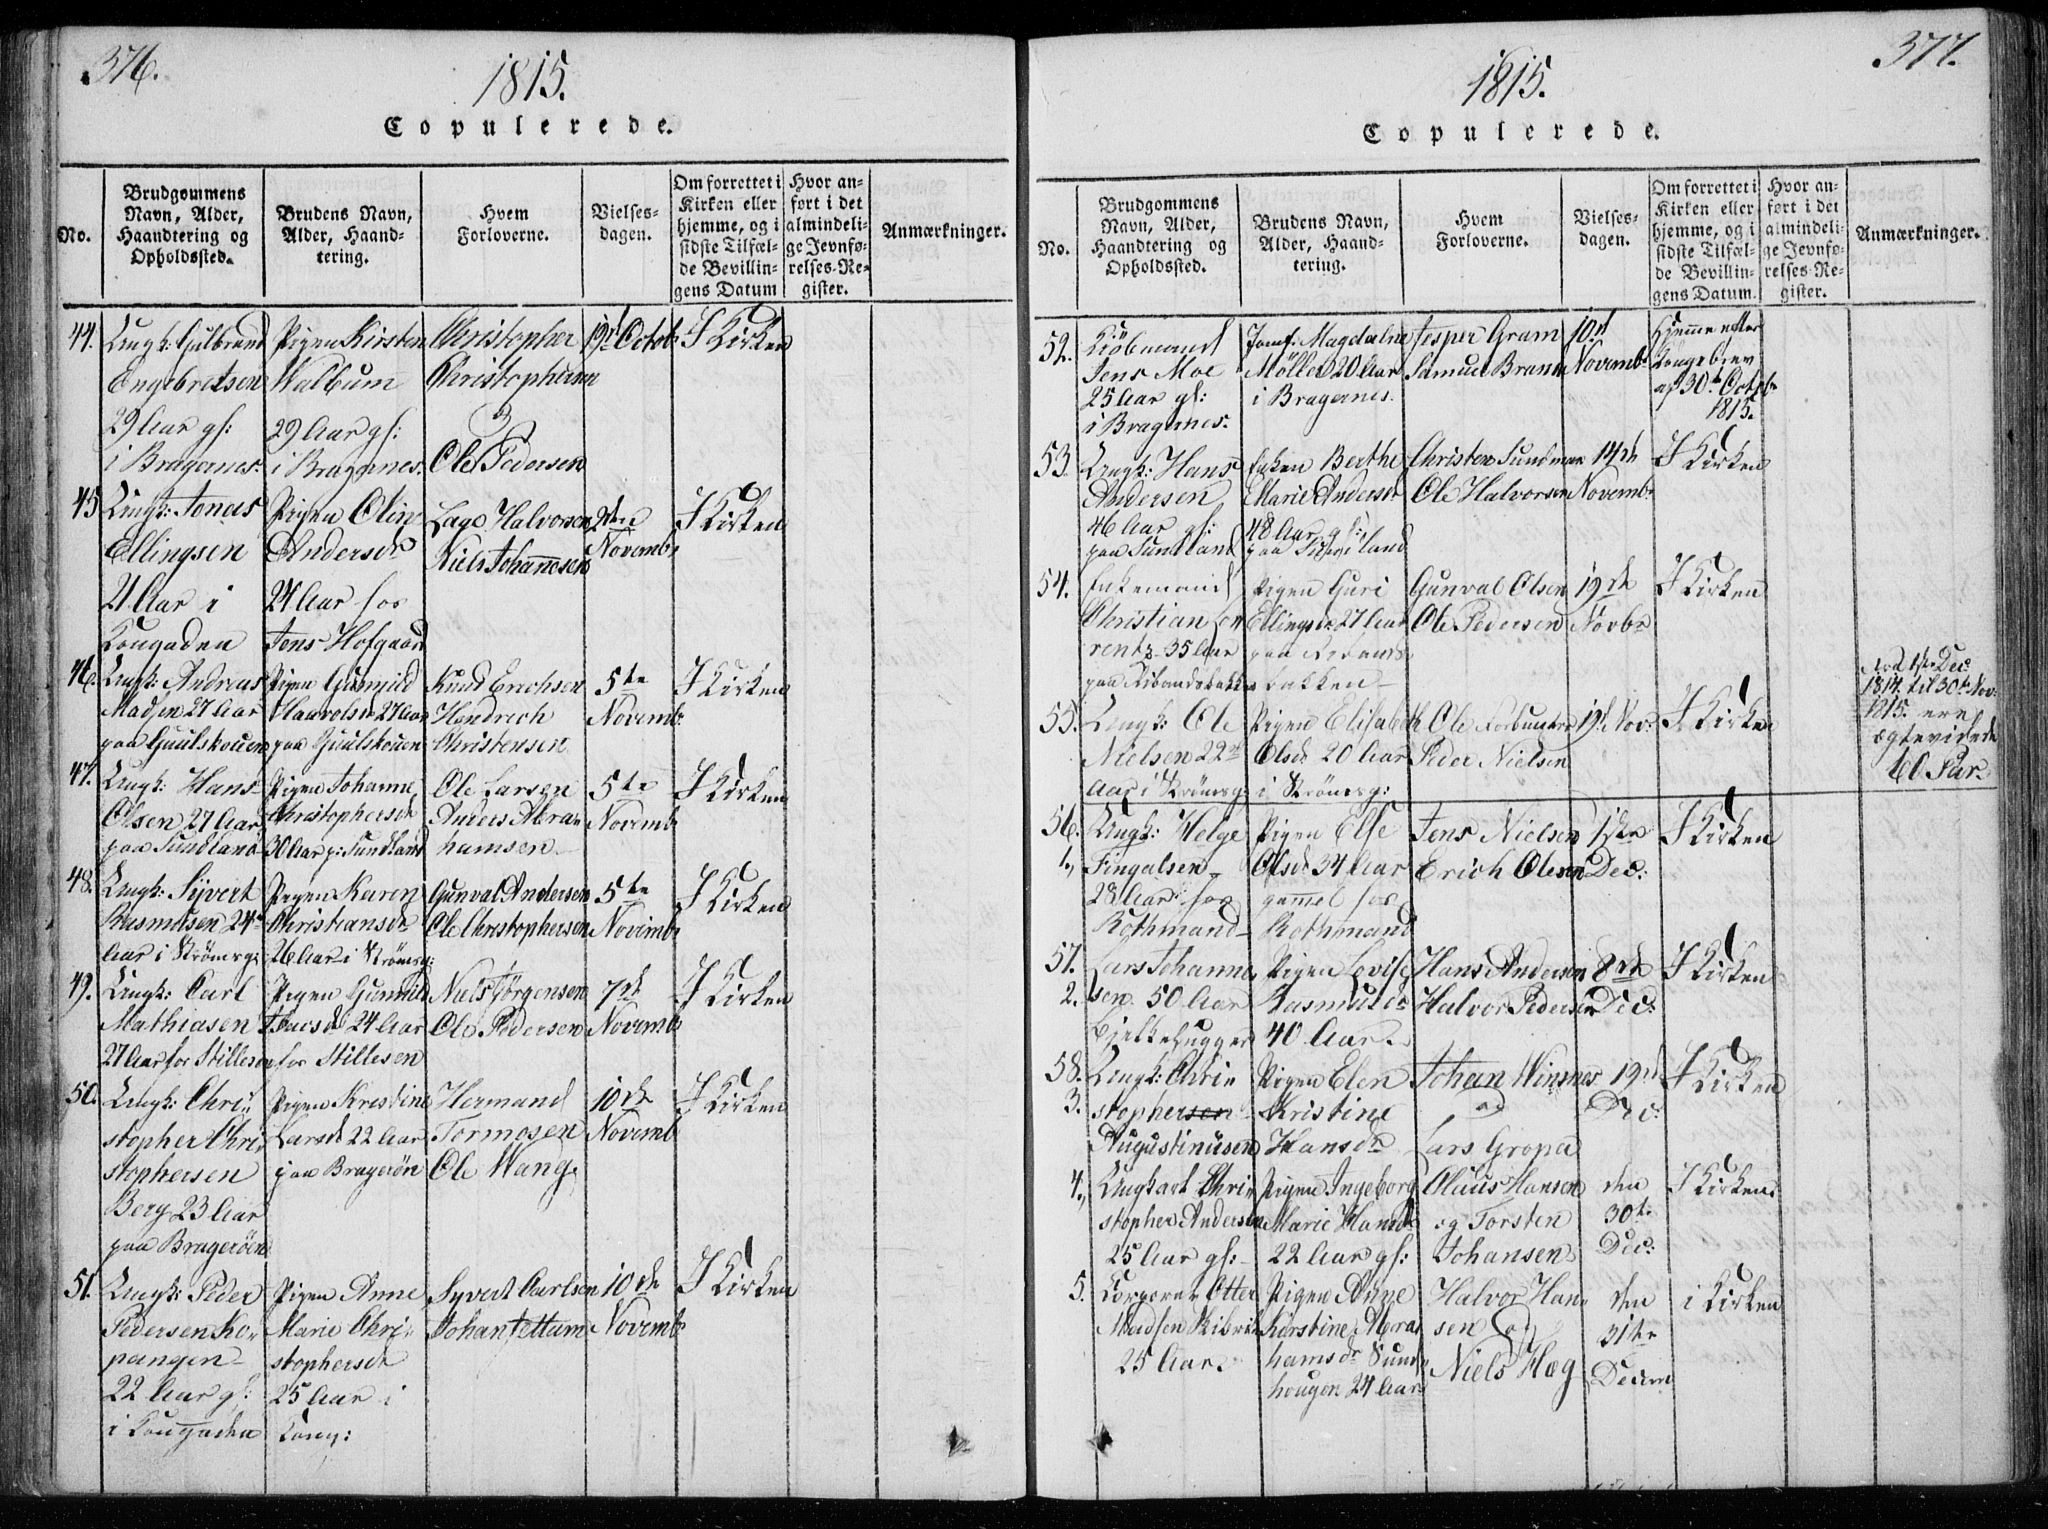 376.
1815.
Copulerede.
No.
Brudgommens
Navn, Alder,
Haandtering og
Opholdssted.
Brudens Navn,
Alder, Haand-
tering.
Hvem
Forloverne.
Vielses-
dagen.
Om forrettet i
Kirken eller
hjemme, og i
sidste Tilfæl-
de Bevillin-
gens Datum
Hvor an-
ført i det
almindeli-
ge Jevnfø-
relses-Re-
gister.
Anmærkninger.
44.
Ungk: Gulbrand
Engebretsen
29 Aar gl:
i Bragernes.
Pigen Kirsten
Walbum
29 Aar gl:
i Bragernes.
Christopher
Christophersen
Ole Pedersen
19de Octob:
I Kirken
45
Ungk: Jonas
Ellingsen
21 Aar i
Kongaden
Pigen Olin
Andersdr
24 Aar hos
Jens Hofgaard
Lage Halvorsen
Niels Johannesen
2den
Novemb:
I Kirken
46.
Ungk: Andreas
Madsen 27 Aar
paa Guulskouen
Pigen Gunnild
Haavolsdr 27 Aar
paa Guulskouen
Knud Erichsen
Hendrich
Christensen
5te
Novemb:
I Kirken
47.
Ungk: Hans
Olsen 27 Aar
paa Sundland
Pigen Johanne
Christophersdr
30 Aar p: Sundland
Ole Larsen
Anders Abra-
hamsen
5te
Novemb
I Kirken
48.
Ungk: Syvert
Rasmusen 24de
Aar i Strömsg:
Pigen Karen
Christiansdr
26 Aar i Strömsg:
Gunval Andersen
Ole Christophersen
5te
Novemb
I Kirken
49.
Ungk: Carl
Mathiasen
27 Aar hos Stillesen
Pigen Gunnild
24 Aar
hos Stillesen
Niels Jörgensen
Ole Pedersen
7de
Novemb
I Kirken
50.
Ungk: Chri-
stopher Chri-
stophersen
Berg 23 Aar
paa Bragerøen
Pigen Kristine
Larsdr 22 Aar
paa Bragerøn
Hermand
Tormosen
Ole Wang
10de
Novemb
I Kirken
51.
Ungk: Peder
Pedersen Ko-
pangen
22 Aar gl:
i Kongaden
Pigen Anne
Marie Chri-
stophersdr
25 Aar i
Kong:
Syvert Carlsen
Johan Tettum
10de
Novemb
I Kirken
377.
1815.
Copulerede.
No.
Brudgommens
Navn, Alder,
Haandtering og
Opholdssted.
Brudens Navn,
Alder, Haand-
tering.
Hvem
Forloverne.
Vielses-
dagen.
Om forrettet i
Kirken eller
hjemme, og i
sidste Tilfæl-
de Bevillin-
gens Datum.
Hvor an-
ført i det
almindeli-
ge Jevnfø-
relses-Re-
gister.
Anmærkninger.
52.
Kiöbmand
Jens Moe
25 Aar gl:
i Bragernes.
Jomf. Magdalne
Möller 20 Aar
i Bragernes.
Jesper Gram
Samuel Brandt
10de
Novemb:
Hjemme efter
Kongebrev
af 30te Octob
1815.
53.
Ungk: Hans
Andersen
46 Aar gl:
paa Sundland
Enken Berthe
Marie Andersdr
48 Aar gl:
paa Sundland
Christen Sundmar
Ole Halvorsen
14de
Novemb:
I Kirken
54.
Enkemand
Christian Lo-
rentz 35 Aar
Pigen Guri
Ellingsdr 27 Aar
Gunval Olsen
Ole Pedersen
19de
Novbr
I Kirken
55.
Ungk: Ole
Nielsen 22de
Aar i Strömsg:
Pigen Elisabeth
Olsdr 20 Aar
i Strömsg:
Peder Nielsen
19de Nov:
I Kirken
Fra 1ste Dec:
1814 til 30te Nov:
1815. ere
ægteviede
60 Par
56.
1.,
Ungk: Helge
Fingalsen
28 Aar hos
Rothmand
Pigen Else
Olsdr 34 Aar
gammel hos
Rothmand
Jens Nielsen
Erich Olesen
1ste
Dec:
I Kirken
57.
2.
Lars Johanne-
sen 50 Aar
Bielkehugger
Pigen Lovise
Rasmusdr
40 Aar
Hans Andersen
Halvor Pedersen
8de
Dec:
I Kirken
58.
3.
Ungk: Chri-
stophersen
Augustinusen
Pigen Elen
Kristine
Hansdr
Johan Winsnes
og
Lars Gropa
19de
Dec:
I Kirken
4.,
Ungkarl Chri-
stopher Andersen
25 Aar gl:
Pigen Ingeborg
Marie Hansdr
22 Aar gl:
Olaus Hansen
og Torsten
Johansen
den
30te
Dec:
I Kirken
5.
Corporal Otter
Madsen
25 Aar.
Pigen Anne
Kirstine Abra-
hamsdr Sund-
hougen 24 Aar
Halvor Han-
sen og
Niels Høg
den
31te
Decem
i Kirken